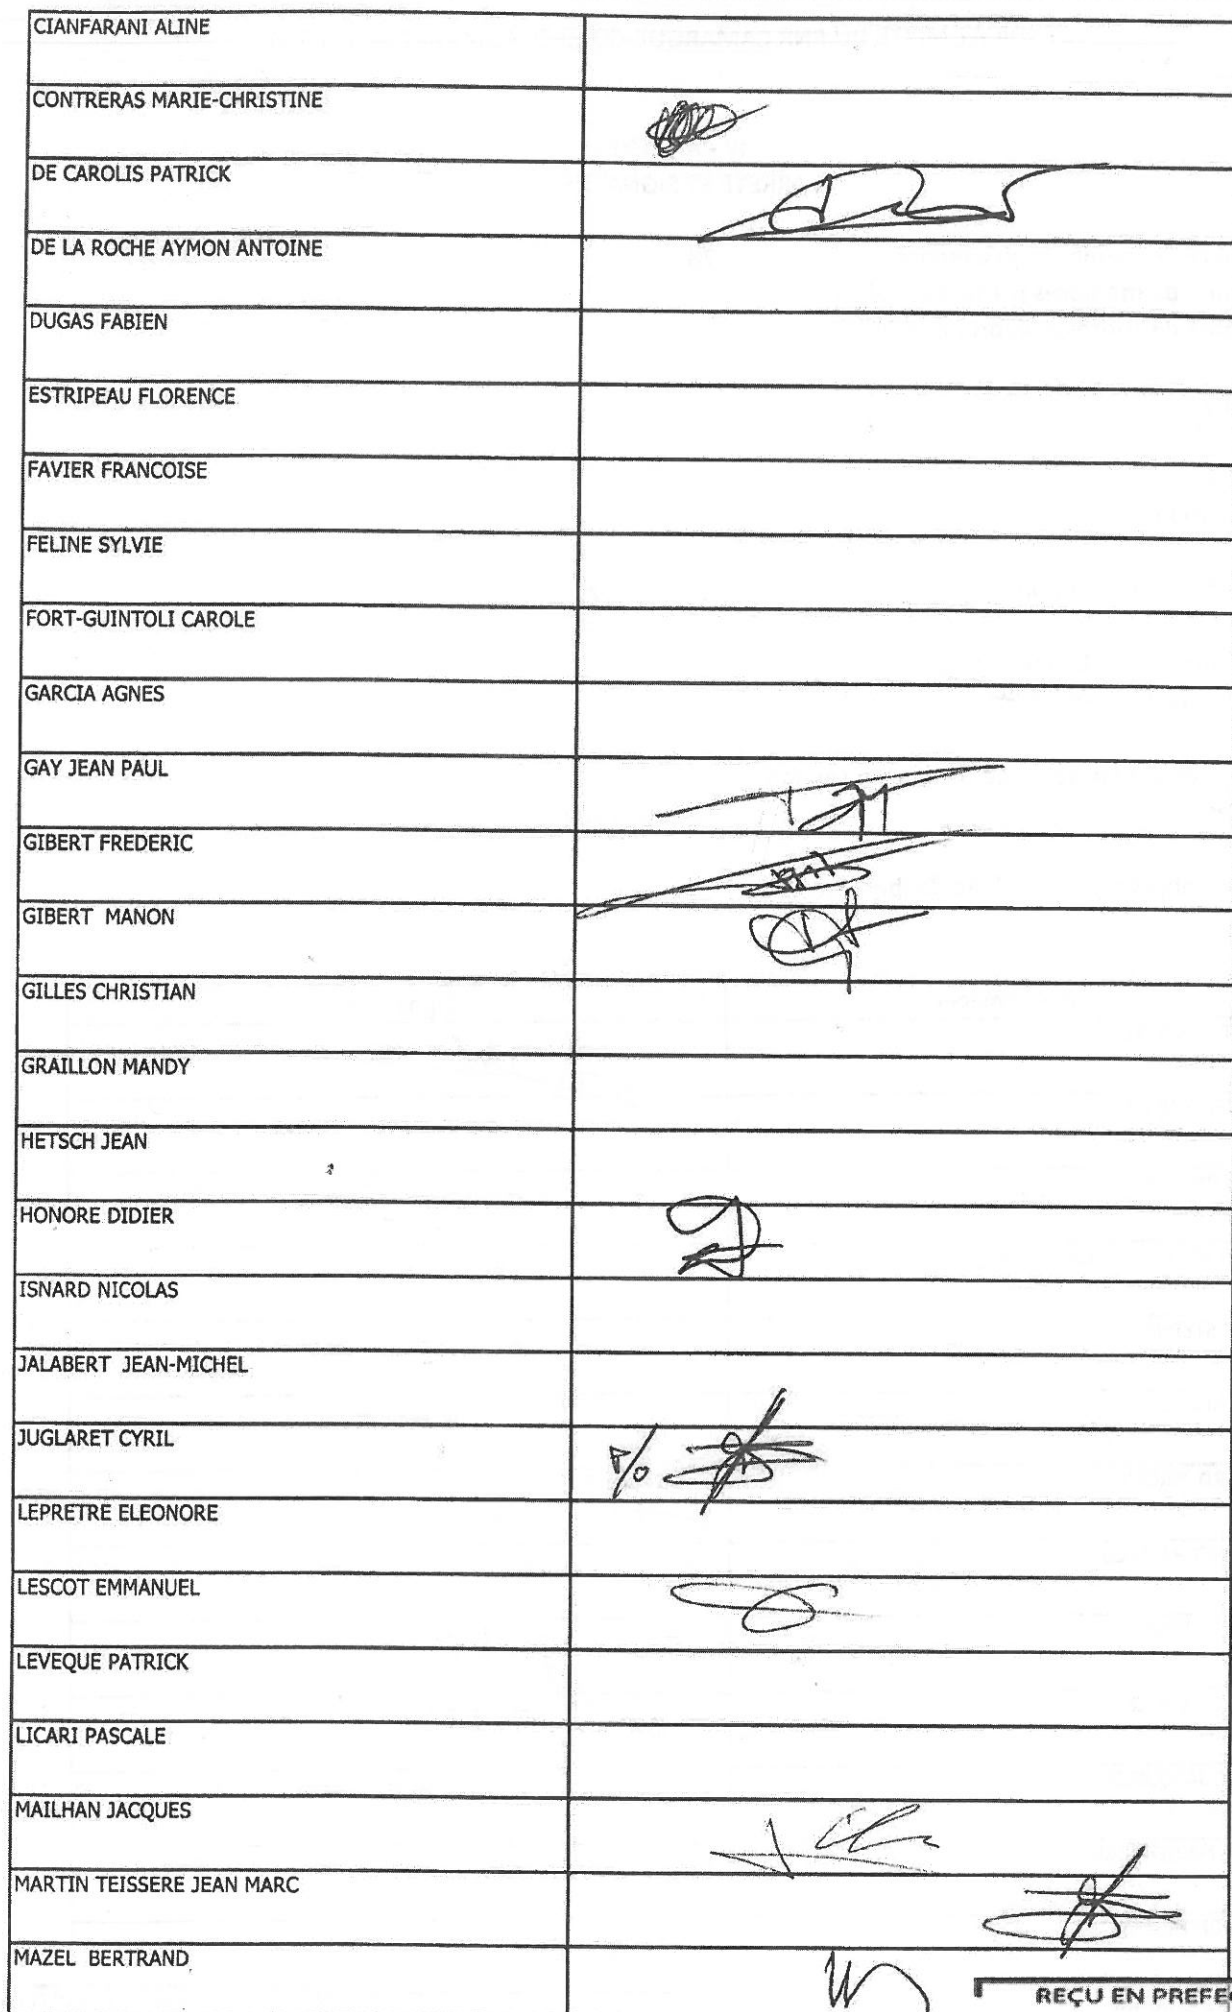 CIANFARANI ALINE
CONTRERAS MARIE-CHRISTINE
DE CAROLIS PATRICK
DE LA ROCHE AYMON ANTOINE
DUGAS FABIEN
ESTRIPEAU FLORENCE
FAVIER FRANCOISE
FELINE SYLVIE
FORT-GUINTOLI CAROLE
GARCIA AGNES
GAY JEAN PAUL
GIBERT FREDERIC
GIBERT MANON
GILLES CHRISTIAN
GRAILLON MANDY
HETSCH JEAN
HONORE DIDIER
ISNARD NICOLAS
JALABERT JEAN-MICHEL
JUGLARET CYRIL P/o
LEPRETRE ELEONORE
LESCOT EMMANUEL
LEVEQUE PATRICK
LICARI PASCALE
MAILHAN JACQUES
MARTIN TEISSERE JEAN MARC
MAZEL BERTRAND
REÇU EN PREFE